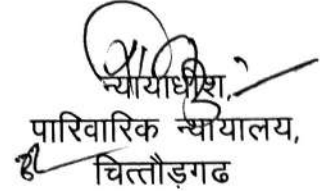 न्यायाधीश,
पारिवारिक न्यायालय,
चित्तौड़गढ